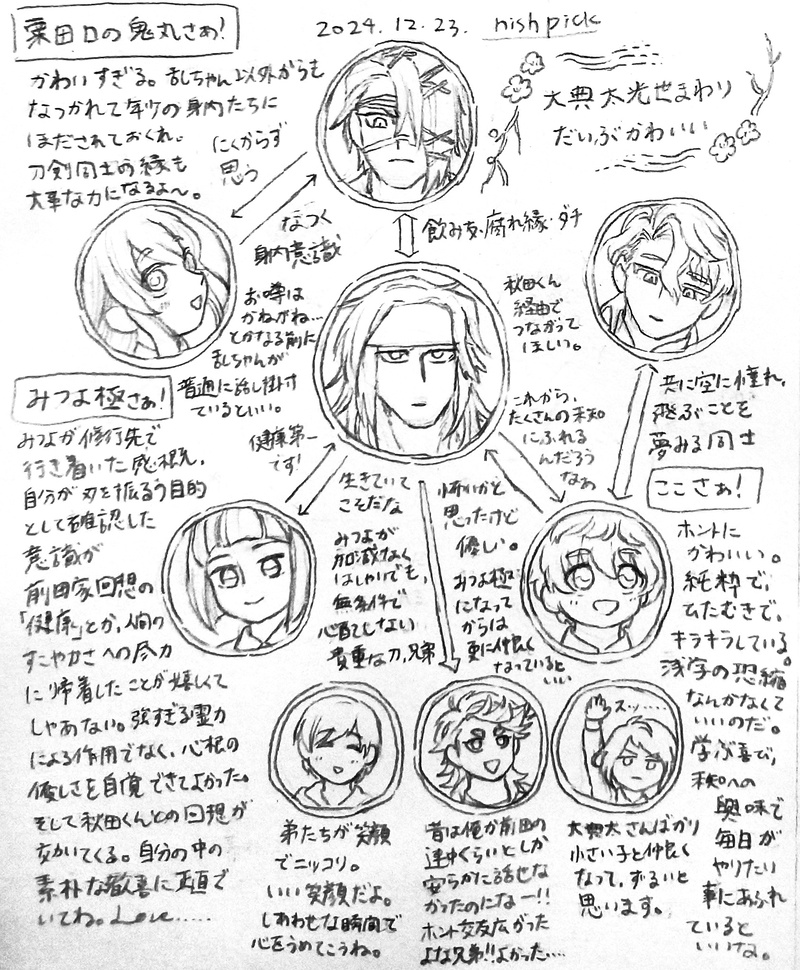 粟田口の鬼丸さぁ!
2024.12.23. nishpick
かわいすぎる。乱ちゃん以外からも
なつかれて年少の身内たちに
ほだされておくれ。
刀剣同士の縁も
大事な力になるよ〜。
にくからず
思う
なつく
身内意識
大典太光世まわり
だいぶかわいい
飲み友・腐れ縁・ダチ
お噂は
かねがね…
とかなる前に
乱ちゃんが
普通に話し掛け
ているといい。
秋田くん
経由で
つながって
ほしい。
共に空に憧れ、
飛ぶことを
夢みる同士
これから、
たくさんの未知
にふれる
んだろう
なぁ
健康第一
です!
みつよ極さぁ!
みつよが修行先で
行き着いた感想え、
自分が刃を振るう目的
として確認した
意識が
前田家回想の
「健康」とか、人間の
すこやかさへの尽力
に帰着したことが嬉しくて
しゃあない。強すぎる霊力
による作用でなく、心根の
優しさを自覚できてよかった。
そして秋田くんとの回想が
効いてくる。自分の中の
素朴な歓喜に正直で
いてね。Love……
生きていて
こそだな
みつよが
加減なく
はしゃいでも、
無条件で
心配てしない
貴重な刀、兄弟
怖いかと
思ったけど
優しい。
みつよ極
になって
からは
更に仲良く
なっていると
いい
ここさぁ!
ホントに
かわいい。
純粋で、
ひたむきで、
キラキラしている。
浅学の恐縮
なんかなくて
いいのだ。
学ぶ喜び、
未知への
興味で
毎日が
やりたい
事にあふれ
ていると
いいな。
スッ……
弟たちが笑顔
でニッコリ。
いい笑顔だよ。
しあわせな時間で
心をうめてこうね。
昔は俺か前田の
連中くらいとしか
安らかに話せな
かったのになー!!
ホント交友広がった
よな兄弟!!よかった…
大典太さんばかり
小さい子と仲良く
なって、ずるいと
思います。